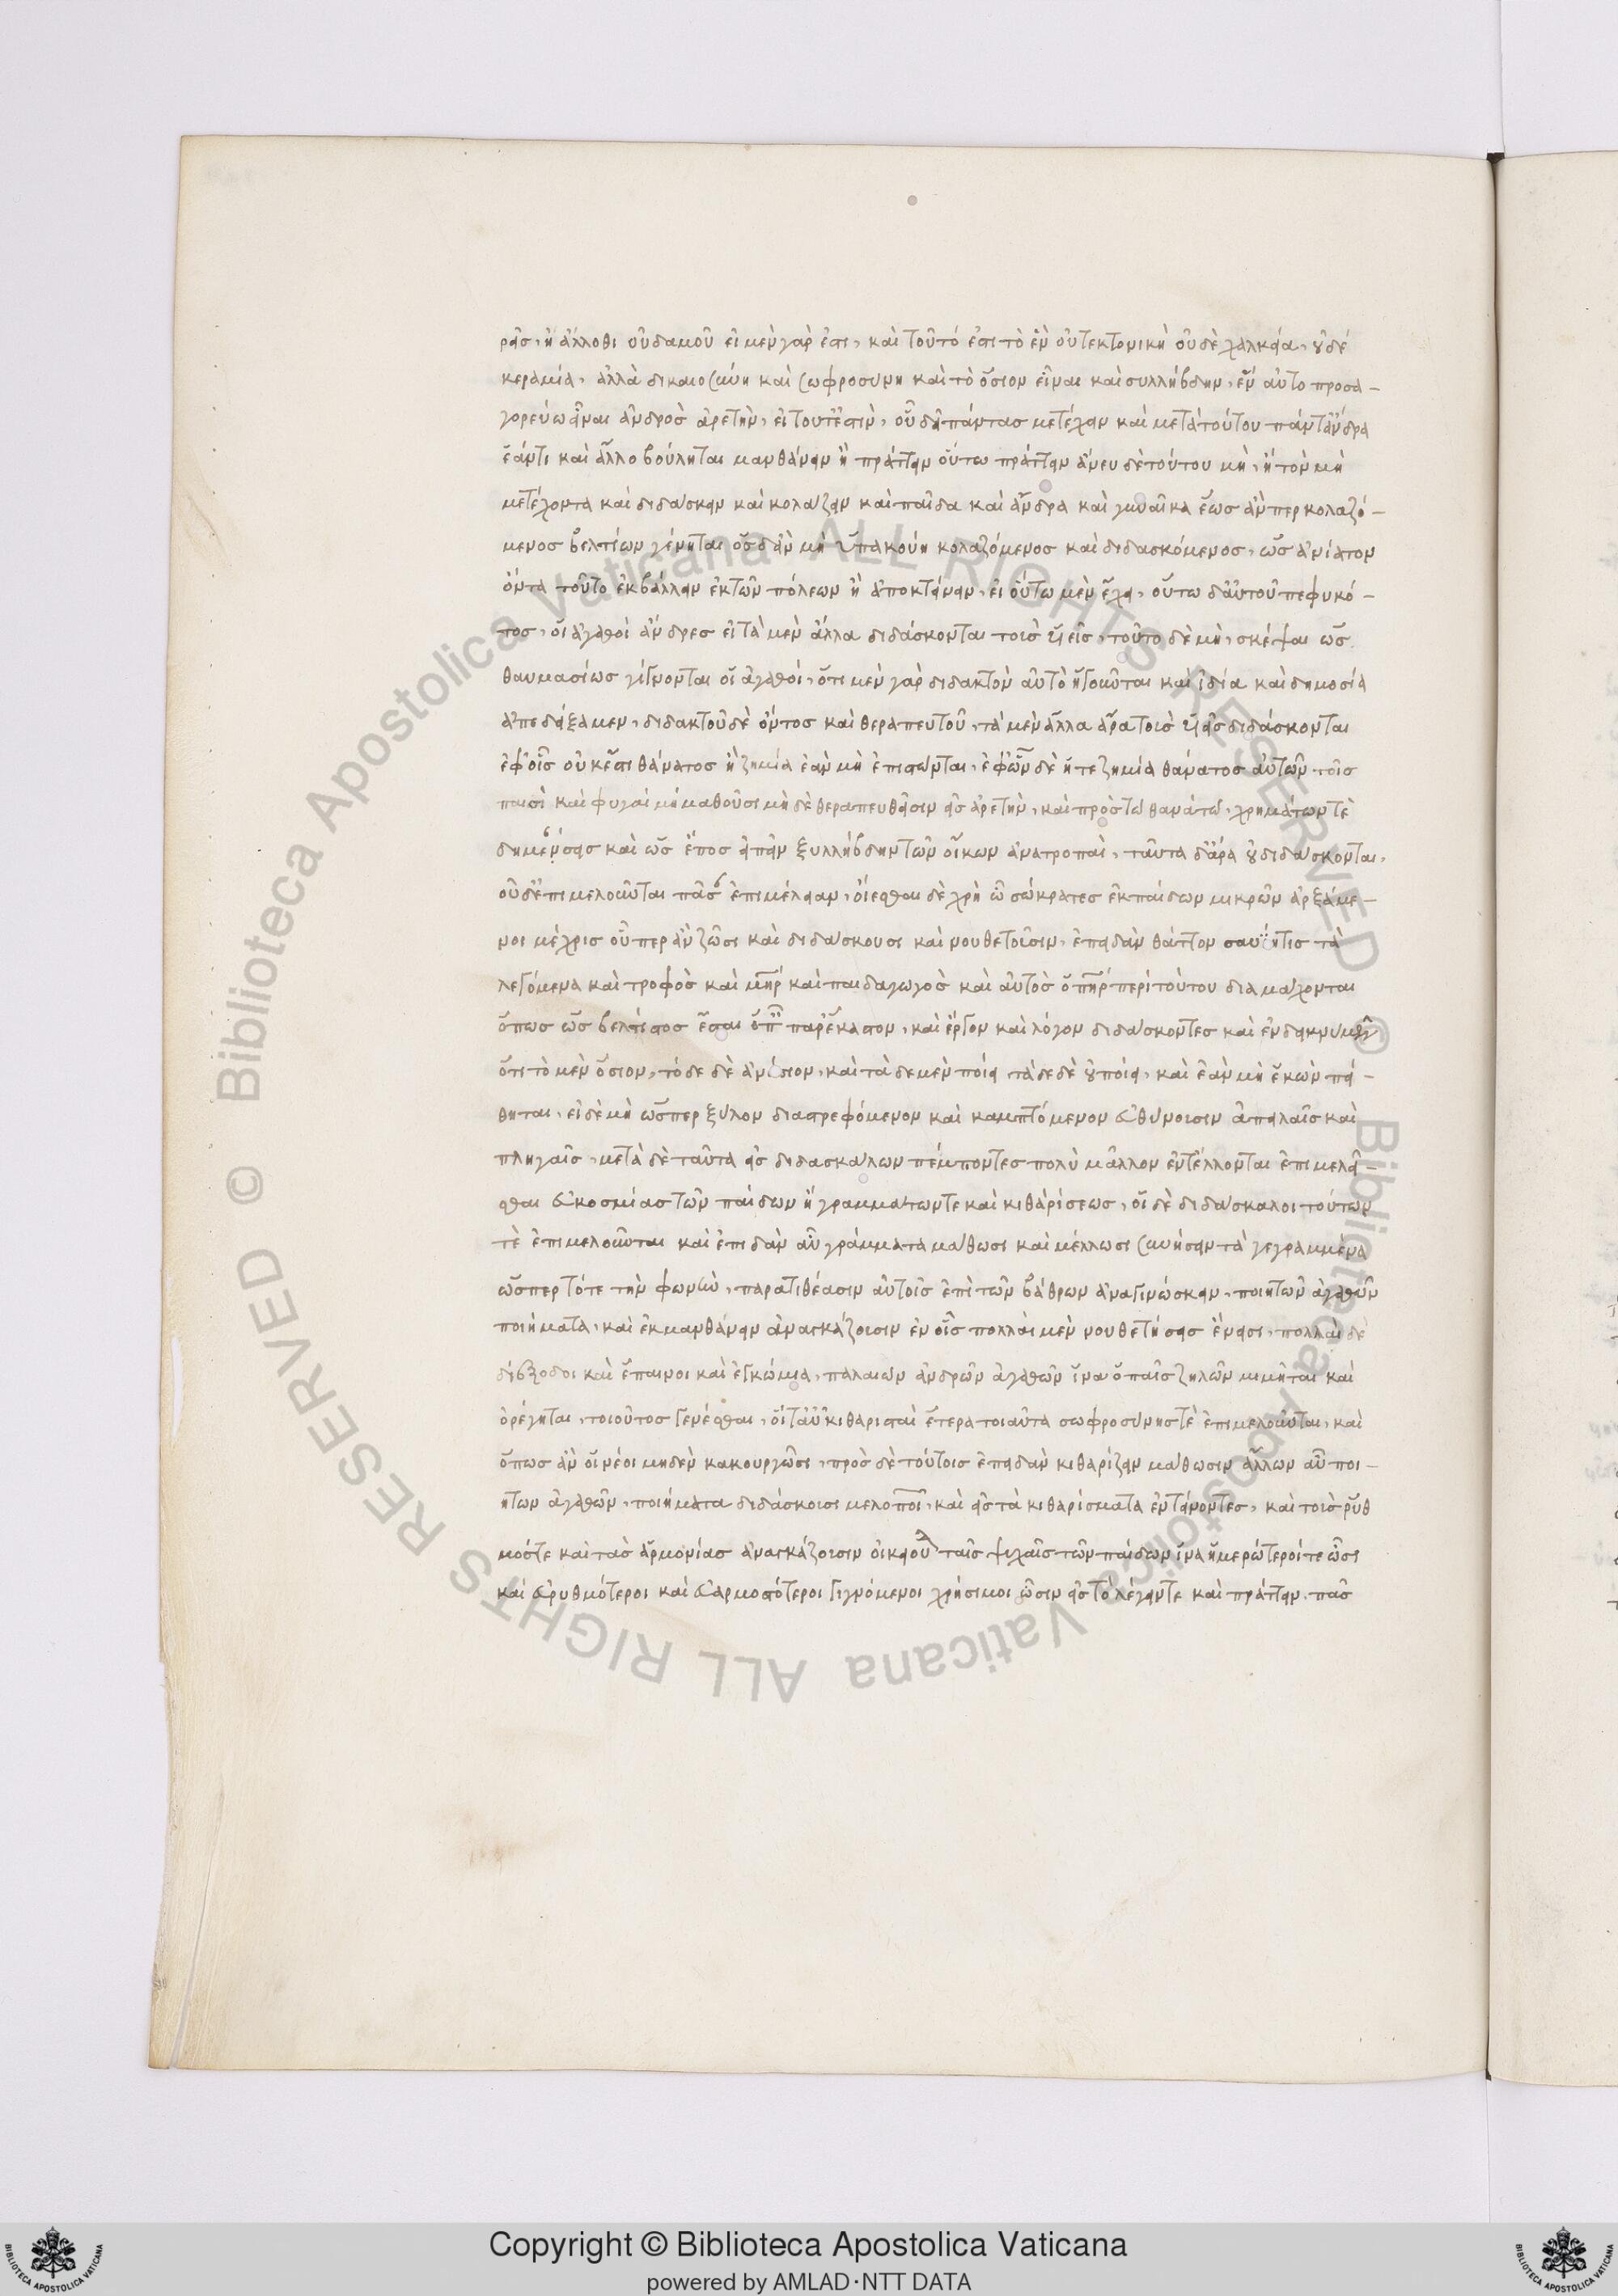 ρεῖς, ἢ ἄλλοθι οὐδαμοῦ εἰ μὲν γάρ ἐστι, καὶ τοῦτό ἐστι τὸ ἓν οὐ τεκτονικὴ οὐδὲ χαλκεία, οὐδέ
κεραμία, ἀλλὰ δικαιοσύνη καὶ σωφροσύνη καὶ τὸ ὅσιον εἶναι καὶ συλλήβδην, ἓν αὐτο προσα-
γορεύω εἶναι ἀνδρὸς ἀρετὴν, εἰ τουτ' ἐστὶν, οὗ δεῖ πάντας μετέχειν καὶ μετὰ τούτου πάντ' ἄνδρα
ἐάν τι καὶ ἄλλο βούληται μανθάνειν ἢ πράττειν οὕτω πράττειν ἄνευ δὲ τούτου μὴ, ἢ τὸν μὴ
μετέχοντα καὶ διδάσκειν καὶ κολάζειν καὶ παῖδα καὶ ἄνδρα καὶ γυναῖκα ἕως ἄν περ κολαζό-
μενος βελτίων γένηται ὃς δ' ἂν μὴ ὑπακούη κολαζόμενος καὶ διδασκόμενος, ὡς ἀνίατον
ὄντα τοῦτο ἐκβάλλειν ἐκ τῶν πόλεων ἢ ἀποκτείνειν, εἰ οὕτω μὲν ἔχει, οὕτω δ' αὐτοῦ πεφυκό-
τος, οἱ ἀγαθοὶ ἄνδρες εἰ τὰ μὲν ἄλλα διδάσκονται τοὺς υἱεῖς, τοῦτο δὲ μὴ, σκέψαι ὡς
θαυμασίως γίγνονται οἱ ἀγαθοί, ὅτι μὲν γὰρ διδακτὸν αὐτὸ ἡγοῦνται καὶ ἰδία καὶ δημοσία
ἀπεδείξαμεν, διδακτοῦ δὲ ὄντος καὶ θεραπευτοῦ, τὰ μὲν ἄλλα ἄρα τοὺς υἱεῖς διδάσκονται
ἐφ' οἷς οὐκ ἔστι θάνατος ἡ ζημία ἐὰν μὴ ἐπιστῶνται, ἐφ' ὧν δὲ ἥ τε ζημία θάνατος αὐτῶν τοῖς
παισὶ καὶ φυγαὶ μὴ μαθοῦσι μὴ δὲ θεραπευθεῖσιν εἰς ἀρετὴν, καὶ πρὸς τῶ θανάτω, χρημάτων τὲ
δημεύσεις καὶ ὡς ἔπος εἰπεῖν ξυλλήβδην τῶν οἴκων ἀνατροπαὶ, ταῦτα δ' ἄρα οὐ διδάσκονται,
οὐδ' ἐπιμελοῦνται πᾶσ ἐπιμέλειαν, οἴεσθαι δὲ χρὴ ὦ σώκρατες ἐκ παίδων μικρῶν ἀρξάμε-
νοι μέχρις οὗπερ ἂν ζῶσι καὶ διδάσκουσι καὶ νουθετοῦσιν, ἐπειδὰν θᾶττον συνίη τις τὰ
λεγόμενα καὶ τροφὸς καὶ μηρ καὶ παιδαγωγὸς καὶ αὐτὸς ὁ πηρ περὶ τούτου διαμάχονται
ὅπως ὡς βέλτιστος ἔσται ὁ π παρ' ἕκαστον, καὶ ἔργον καὶ λόγον διδάσκοντες καὶ ἐνδεικνύμενοι
ὅτι τὸ μὲν ὅσιον, τόδε δὲ ἀνόσιον, καὶ τὰ δε μὲν ποίει, τὰ δε δὲ οὐ ποίει, καὶ ἐὰν μὴ ἑκὼν πεί-
θηται, εἰ δὲ μὴ ὥσπερ ξύλον διαστρεφόμενον καὶ καμπτόμενον εὐθύνουσιν ἀπειλαῖς καὶ
πληγαῖς, μετὰ δὲ ταῦτα εἰς διδασκάλων πέμποντες πολὺ μᾶλλον ἐντέλλονται ἐπιμελεῖ-
σθαι εὐκοσμίας τῶν παίδων ἢ γραμμάτων τε καὶ κιθαρίσεως, οἱ δὲ διδάσκαλοι τούτων
τὲ ἐπιμελοῦνται καὶ ἐπιδὰν αὖ γράμματα μάθωσι καὶ μέλλωσι συνήσειν τὰ γεγραμμένα
ὥσπερ τότε τὴν φωνὴν, παρατιθέασιν αὐτοῖς ἐπὶ τῶν βάθρων ἀναγινώσκειν, ποιητῶν ἀγαθῶν
ποιήματα, καὶ ἐκμανθάνειν ἀναγκάζουσιν ἐν οἷς πολλαὶ μὲν νουθετήσεις ἔνεισι, πολλαὶ δὲ
διέξοδοι καὶ ἔπαινοι καὶ ἐγκώμια, παλαιῶν ἀνδρῶν ἀγαθῶν ἵνα ὁ παῖς ζηλῶν μιμῆται καὶ
ὀρέγηται, τοιοῦτος γενέσθαι, οἵ τ' αὖ κιθαρισταὶ ἕτερα τοιαῦτα σωφροσύνης τὲ ἐπιμελοῦνται, καὶ
ὅπως ἂν οἱ νέοι μηδὲν κακουργῶσι, πρὸς δὲ τούτοις ἐπειδὰν κιθαρίζειν μάθωσιν ἄλλων αὖ ποι-
ητῶν ἀγαθῶν, ποιήματα διδάσκουσι μελοποι, καὶ εἰς τὰ κιθαρίσματα ἐντείνοντες, καὶ τοὺς ῥυθ
μούς τε καὶ τὰς ἁρμονίας ἀναγκάζουσιν οἰκειοῦ ταῖς ψυχαῖς τῶν παίδων ἵνα ἡμερώτεροί τε ὦσι
καὶ εὐρυθμότεροι καὶ εὐαρμοστότεροι γιγνόμενοι χρήσιμοι ὦσιν εἰς τὸ λέγειν τε καὶ πράττειν, πᾶς
Copyright © Biblioteca Apostolica Vaticana
powered by AMLAD·NTT DATA
© Biblioteca Apostolica Vaticana ALL RIGHTS RESERVED
© Biblioteca Apostolica Vaticana ALL RIGHTS RESERVED